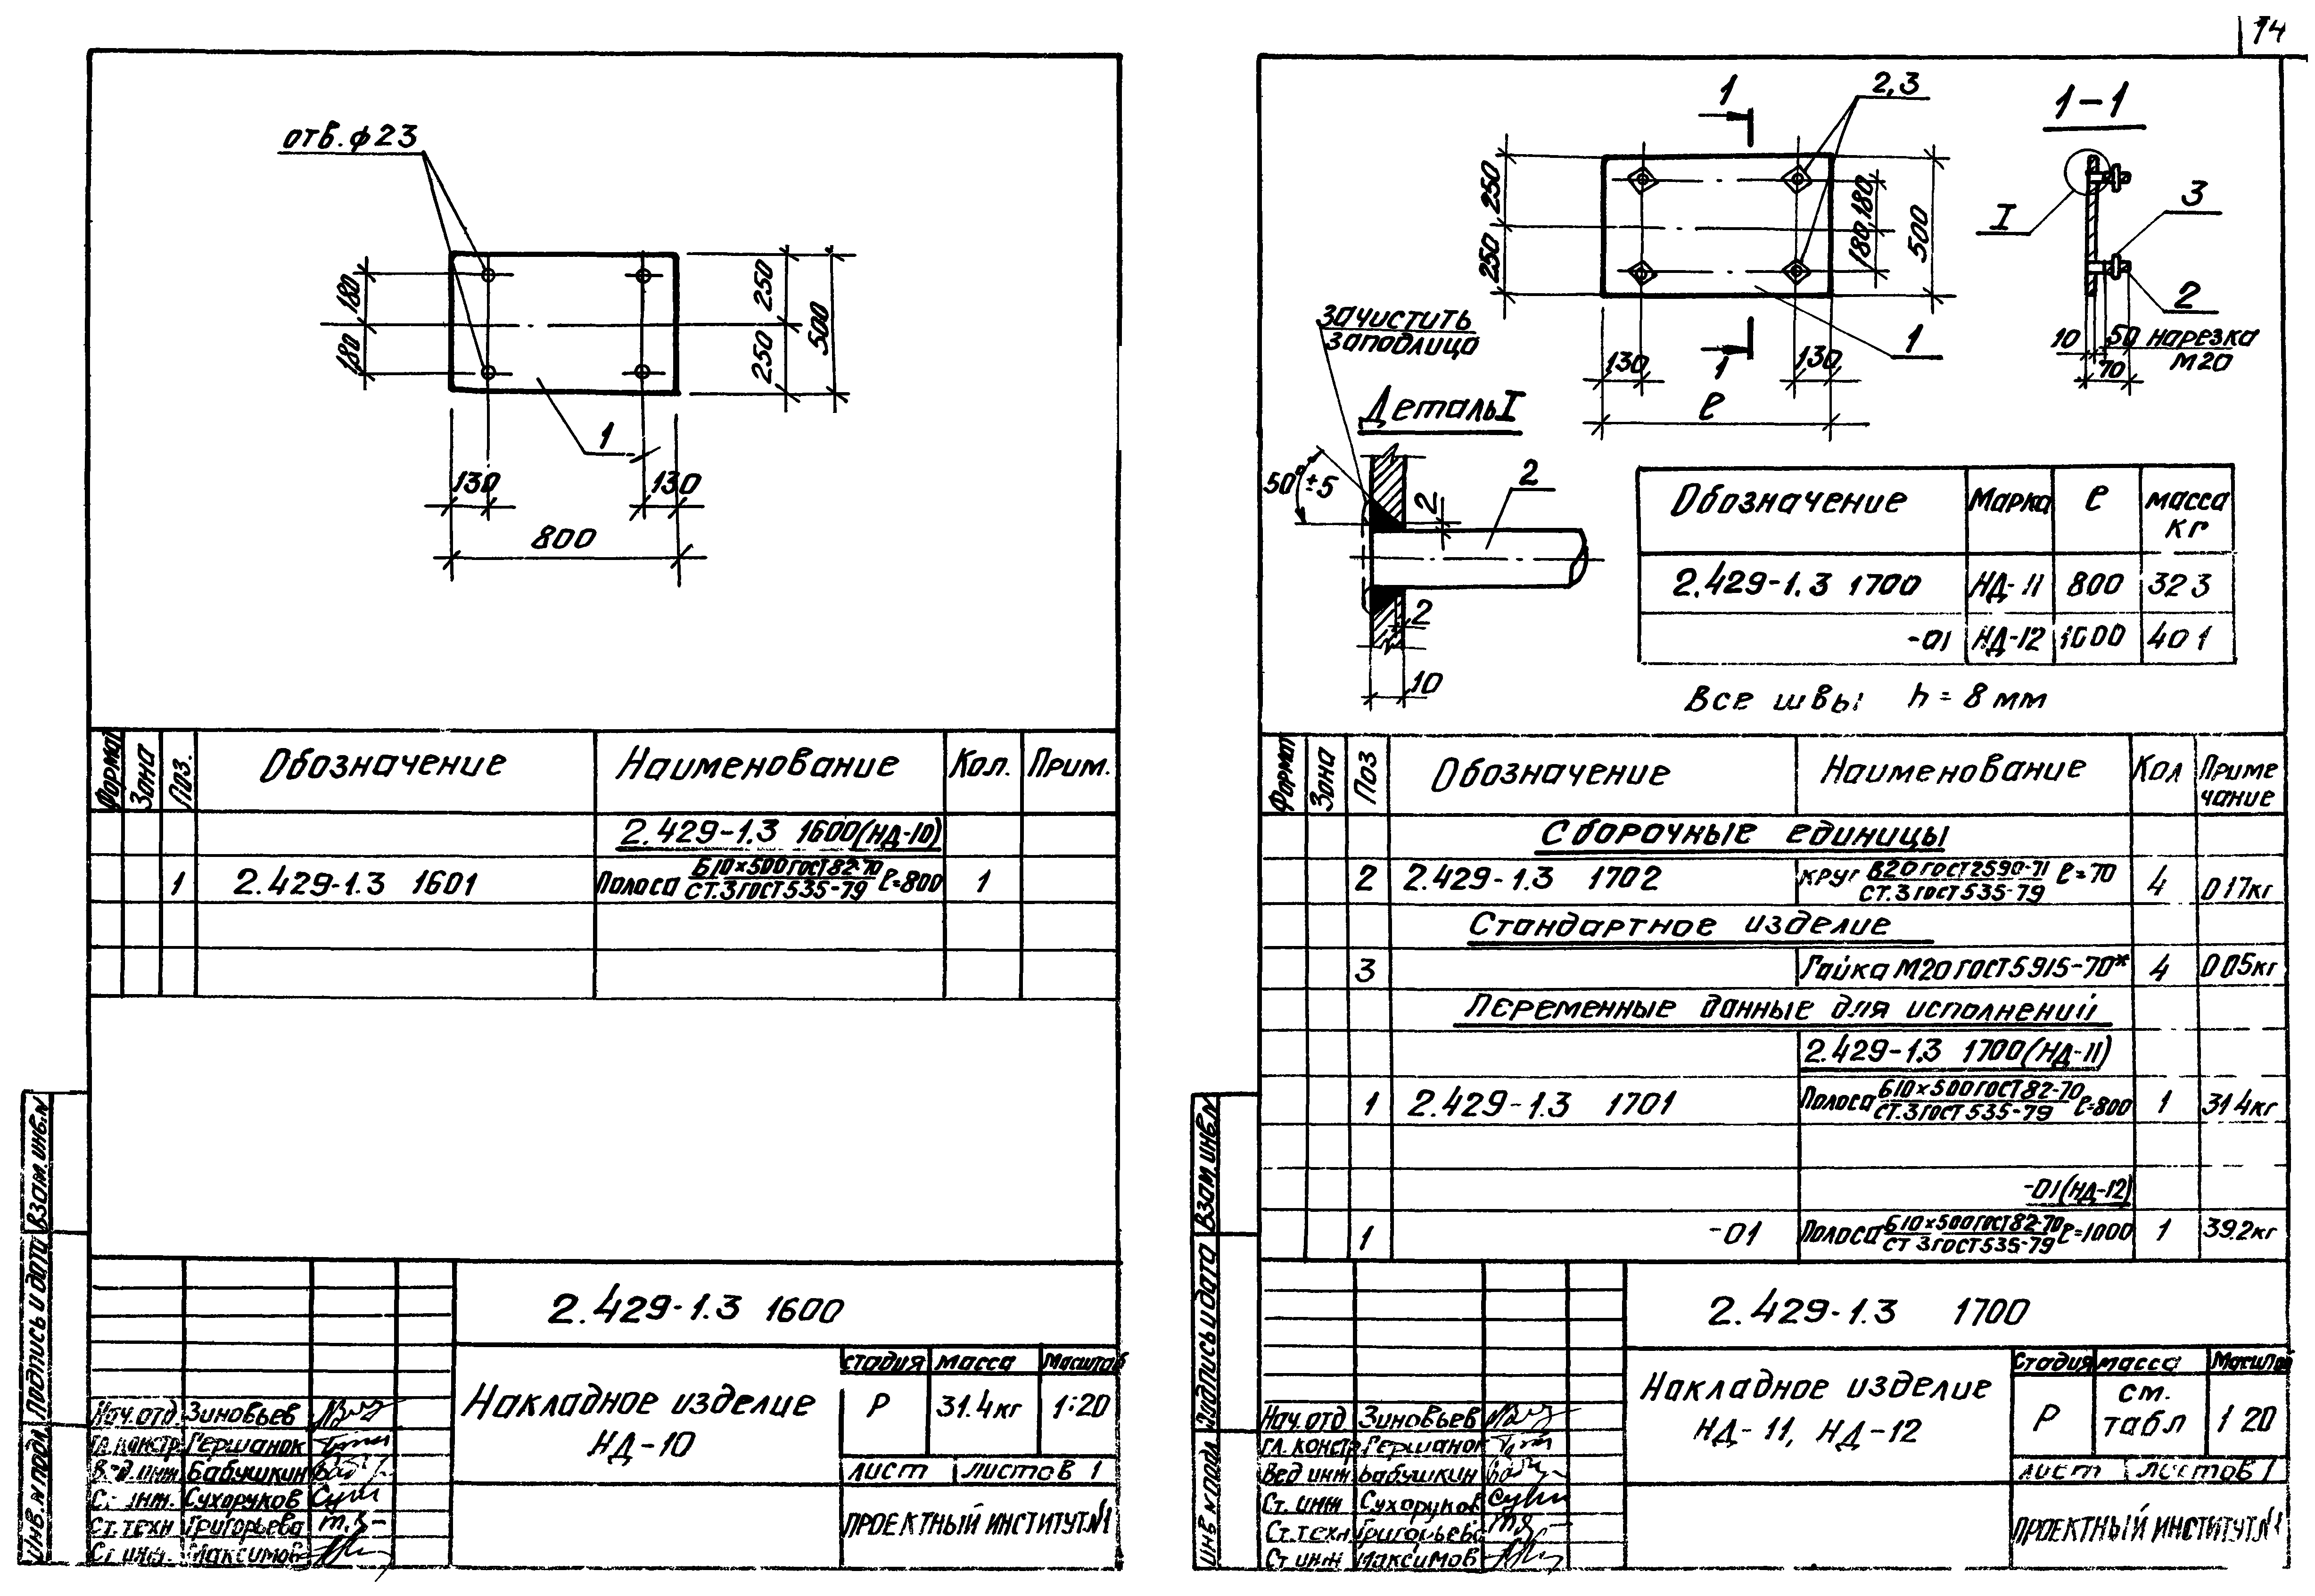 14
отв. ф23
180
180
250
250
500
1
130
130
800
Формат
Зона
Поз.
Обозначение
Наименование
Кол.
Прим.
2.429-1.3 1600(НД-10)
1
2.429-1.3 1601
Полоса Б10×500ГОСТ82-70 ℓ=800
СТ.3ГОСТ535-79
1
2.429-1.3 1600
Накладное изделие
НД-10
стадия масса Масштаб
Р 31.4кг 1:20
лист листов 1
ПРОЕКТНЫЙ ИНСТИТУТ №1
Нач.отд. Зиновьев
Гл.констр. Гершанок
Вед.инж. Бабушкин
Ст.инж. Сухоруков
Ст.техн Григорьева
Ст.инж. Максимов
Инв.№подл.
Подпись и дата
Взам.инв.№
1
2,3
1-1
250
250
180
180
500
I
3
2
10
50 нарезка
М20
70
1
130
1
130
ℓ
зачистить
заподлицо
Деталь I
50° ±5
2
2
2
10
Обозначение Марка ℓ масса
кг
2.429-1.3 1700 НД-11 800 32 3
-01 НД-12 1000 40 1
Все швы h = 8 мм
Формат
Зона
Поз
Обозначение
Наименование
Кол
Приме
чание
Сборочные единицы
2 2.429-1.3 1702 круг В20 ГОСТ2590-71 ℓ=70 4 0 17кг
СТ.3ГОСТ535-79
Стандартное изделие
3 Гайка М20 ГОСТ5915-70* 4 0 05кг
Переменные данные для исполнений
2.429-1.3 1700(НД-11)
1 2.429-1.3 1701 Полоса Б10×500ГОСТ82-70 ℓ=800 1 31 4кг
СТ.3ГОСТ535-79
-01(НД-12)
1 -01 Полоса Б10×500ГОСТ82-70 ℓ=1000 1 39.2кг
СТ 3ГОСТ535-79
2.429-1.3 1700
Накладное изделие
НД-11, НД-12
Стадия масса Масштаб
Р см. табл 1 20
лист листов 1
ПРОЕКТНЫЙ ИНСТИТУТ №1
Нач.отд Зиновьев
Гл.констр Гершанок
Вед инж Бабушкин
Ст. инж Сухоруков
Ст.техн Григорьева
Ст инж Максимов
Инв №подл
Подпись и дата
Взам.инв.№